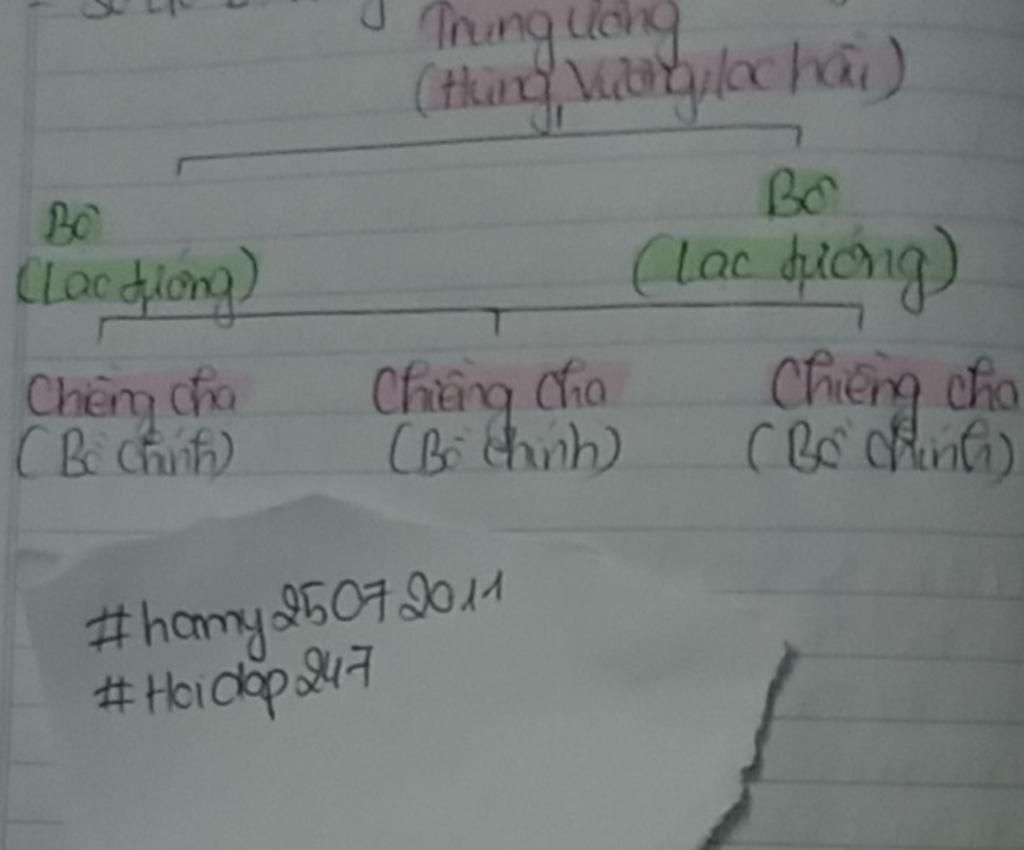 Trung ương
(Hùng Vương, lạc hầu)
Bộ
Bộ
(Lạc tướng)
(Lạc tướng)
Chiềng chạ
Chiềng chạ
Chiềng chạ
(Bồ chính)
(Bồ chính)
(Bồ chính)
#hamy25072011
#Hoidap247